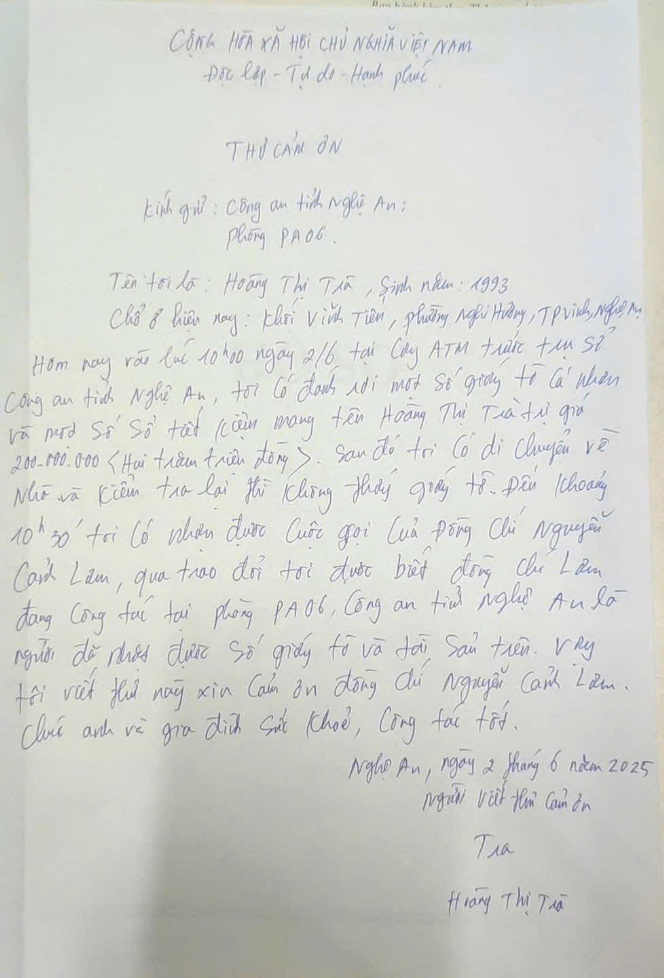 CỘNG HÒA XÃ HỘI CHỦ NGHĨA VIỆT NAM
Độc lập - Tự do - Hạnh phúc.
THƯ CẢM ƠN
Kính gửi: Công an tỉnh Nghệ An;
Phòng PA06.
Tên tôi là: Hoàng Thị Trà, Sinh năm: 1993
Chỗ ở hiện nay: Khối Vĩnh Tiên, phường Nghi Hương, TP Vinh, Nghệ An
Hôm nay vào lúc 10h00 ngày 2/6 tại Cây ATM trước trụ Sở
Công an tỉnh Nghệ An, tôi Có đánh rơi một Số giấy tờ Cá nhân
và một Số Sổ tiết Kiệm mang tên Hoàng Thị Trà trị giá
200.000.000 <Hai trăm triệu đồng>. Sau đó tôi Có di Chuyển về
Nhà và Kiểm tra lại thì Không thấy giấy tờ. Đến Khoảng
10h30' tôi Có nhận được Cuộc gọi Của Đồng Chí Nguyễn
Cảnh Lâm, qua trao đổi tôi được biết đồng chí Lâm
đang Công tác tại phòng PA06, Công an tỉnh Nghệ An là
người đã nhặt được Số giấy tờ và tài Sản trên. Vậy
tôi viết thư này xin Cảm ơn đồng chí Nguyễn Cảnh Lâm.
Chúc anh và gia đình Sức Khoẻ, Công tác tốt.
Nghệ An, ngày 2 tháng 6 năm 2025
Người viết thư Cảm ơn
Trà
Hoàng Thị Trà